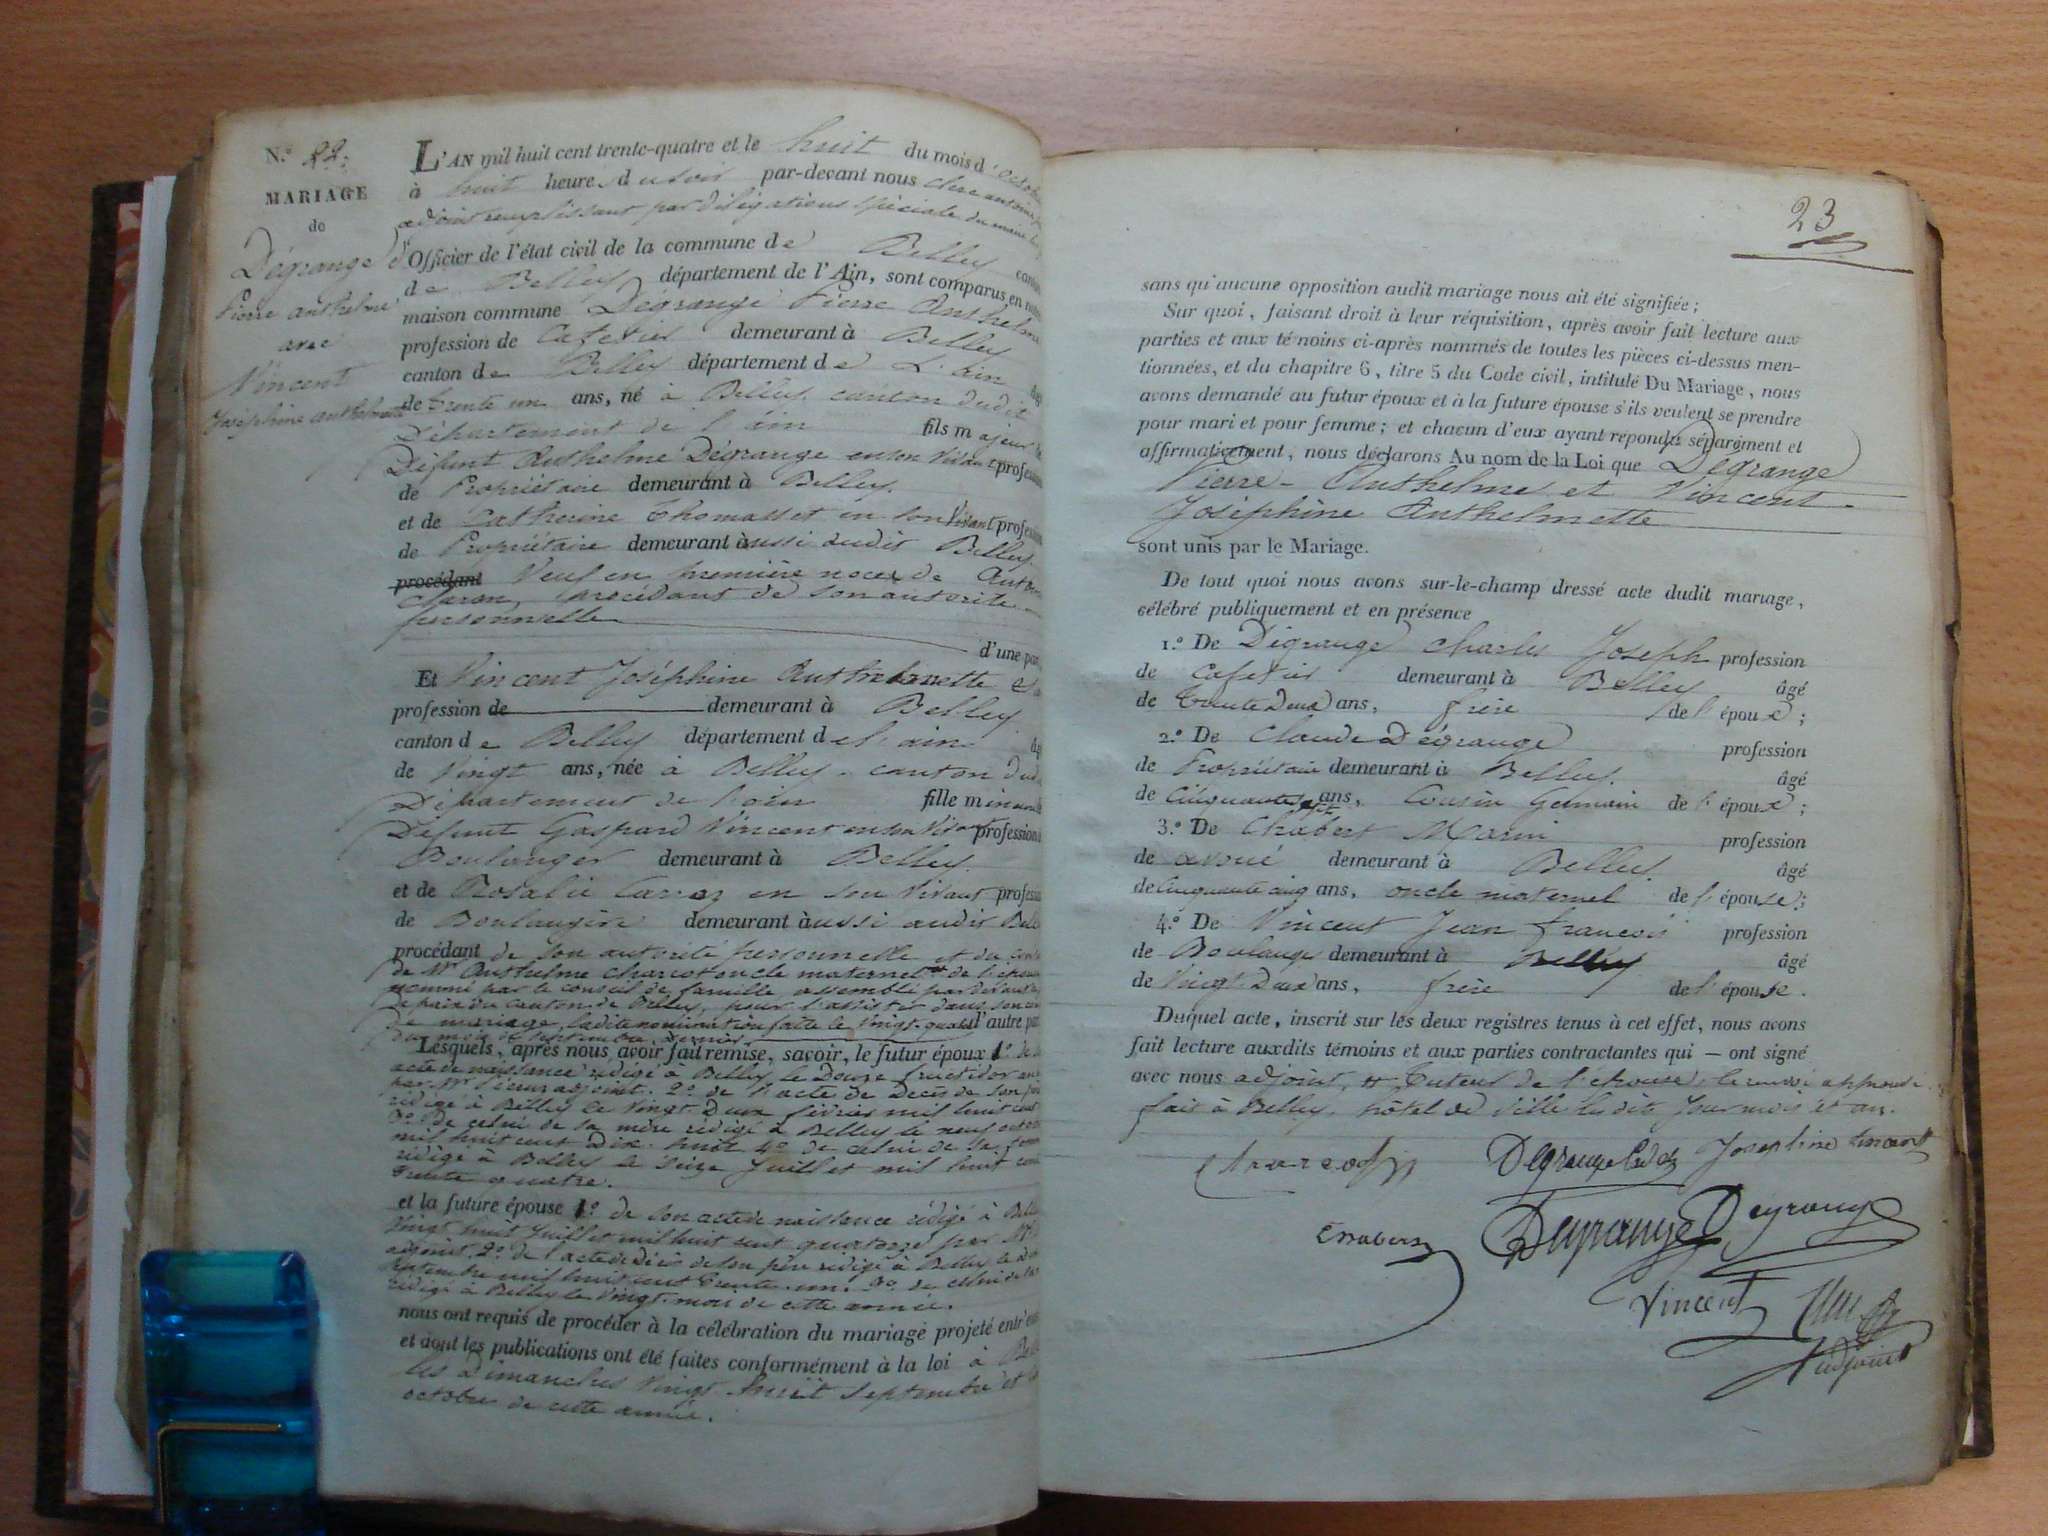 N.º 22.
MARIAGE
de
Dégrange
Pierre anthelme
avec
Vincent
Joséphine anthelmette
L'AN mil huit cent trente-quatre et le huit du mois d'octobre
à huit heures du soir par-devant nous
adjoint remplissant par délégation spéciale du maire
d'Officier de l'état civil de la commune de Belley canton
de Belley département de l'Ain, sont comparus en notre
maison commune Dégrange Pierre Anthelme
profession de Cafetier demeurant à Belley
canton de Belley département de L'ain
de trente un ans, né à Belley canton dudit
Département de l'ain fils majeur
Défunt Anthelme Dégrange en son vivant profession
de Propriétaire demeurant à Belley.
et de Catherine Thomasset en son vivant profession
de Propriétaire demeurant aussi audit Belley
procédant Veuf en première noces de
procédant de son autorité
personnelle
d'une part
Et Vincent Joséphine Anthelmette
profession de demeurant à Belley
canton de Belley département de l'ain
de Vingt ans, née à Belley canton dudit
Département de l'ain fille mineure
Défunt Gaspard Vincent en son vivant profession
Boulanger demeurant à Belley
et de Rosalie en son vivant profession
de Boulangère demeurant aussi audit Belley
procédant de son autorité personnelle et du
de Mr Anthelme oncle maternel de l'épouse
nommé par le conseil de famille assemblé par devant
de paix du canton de Belley, pour l'assister dans son
de mariage, ladite nomination faite le vingt-quatre d'autre part
du mois de septembre dernier.
Lesquels, après nous avoir fait remise, savoir, le futur époux 1º de
acte de naissance rédigé à Belley le Douze fructidor
par Mr adjoint. 2º de l'acte de Décès de son père
rédigé à Belley le Vingt Deux février mil huit cent
3º De celui de sa mère rédigé à Belley le neuf octobre
mil huit cent Dix-huit 4º de celui de sa femme
rédigé à Belley le Seize Juillet mil huit cent
trente quatre.
et la future épouse 1º de son acte de naissance rédigé à Belley
Vingt huit Juillet mil huit cent quatorze par Mr
adjoint. 2º de l'acte de Décès de son père rédigé à Belley le
septembre mil huit cent trente-un. 3º de celui de sa
rédigé à Belley le Vingt-mars de cette année.
nous ont requis de procéder à la célébration du mariage projeté entr'eux
et dont les publications ont été faites conformément à la loi à Belley
les Dimanches Vingt-huit septembre et
octobre de cette année.
23
sans qu'aucune opposition audit mariage nous ait été signifiée;
Sur quoi, faisant droit à leur réquisition, après avoir fait lecture aux
parties et aux témoins ci-après nommés de toutes les pièces ci-dessus men-
tionnées, et du chapitre 6, titre 5 du Code civil, intitulé Du Mariage, nous
avons demandé au futur époux et à la future épouse s'ils veulent se prendre
pour mari et pour femme; et chacun d'eux ayant répondu séparément et
affirmativement, nous déclarons Au nom de la Loi que Dégrange
Pierre-Anthelme et Vincent
Joséphine Anthelmette
sont unis par le Mariage.
De tout quoi nous avons sur-le-champ dressé acte dudit mariage,
célébré publiquement et en présence
1.º De Dégrange Charles Joseph profession
de Cafetier demeurant à Belley âgé
de trente Deux ans, frère de l'époux;
2.º De Claude Dégrange profession
de Propriétaire demeurant à Belley âgé
de Cinquante sept ans, Cousin Germain de l'époux;
3.º De Chabert Marin profession
de avoué demeurant à Belley âgé
de Cinquante cinq ans, oncle maternel de l'épouse;
4.º De Vincent Jean françois profession
de Boulanger demeurant à Belley âgé
de Vingt Deux ans, frère de l'épouse.
Duquel acte, inscrit sur les deux registres tenus à cet effet, nous avons
fait lecture auxdits témoins et aux parties contractantes qui — ont signé
avec nous adjoint, # Tuteur de l'épouse, le renvoi approuvé.
fait à Belley, hôtel de Ville lesdits Jour mois et an.
Dégrange Josephine Vincent
Chabert Degrange Degrange
Vincent
Adjoint